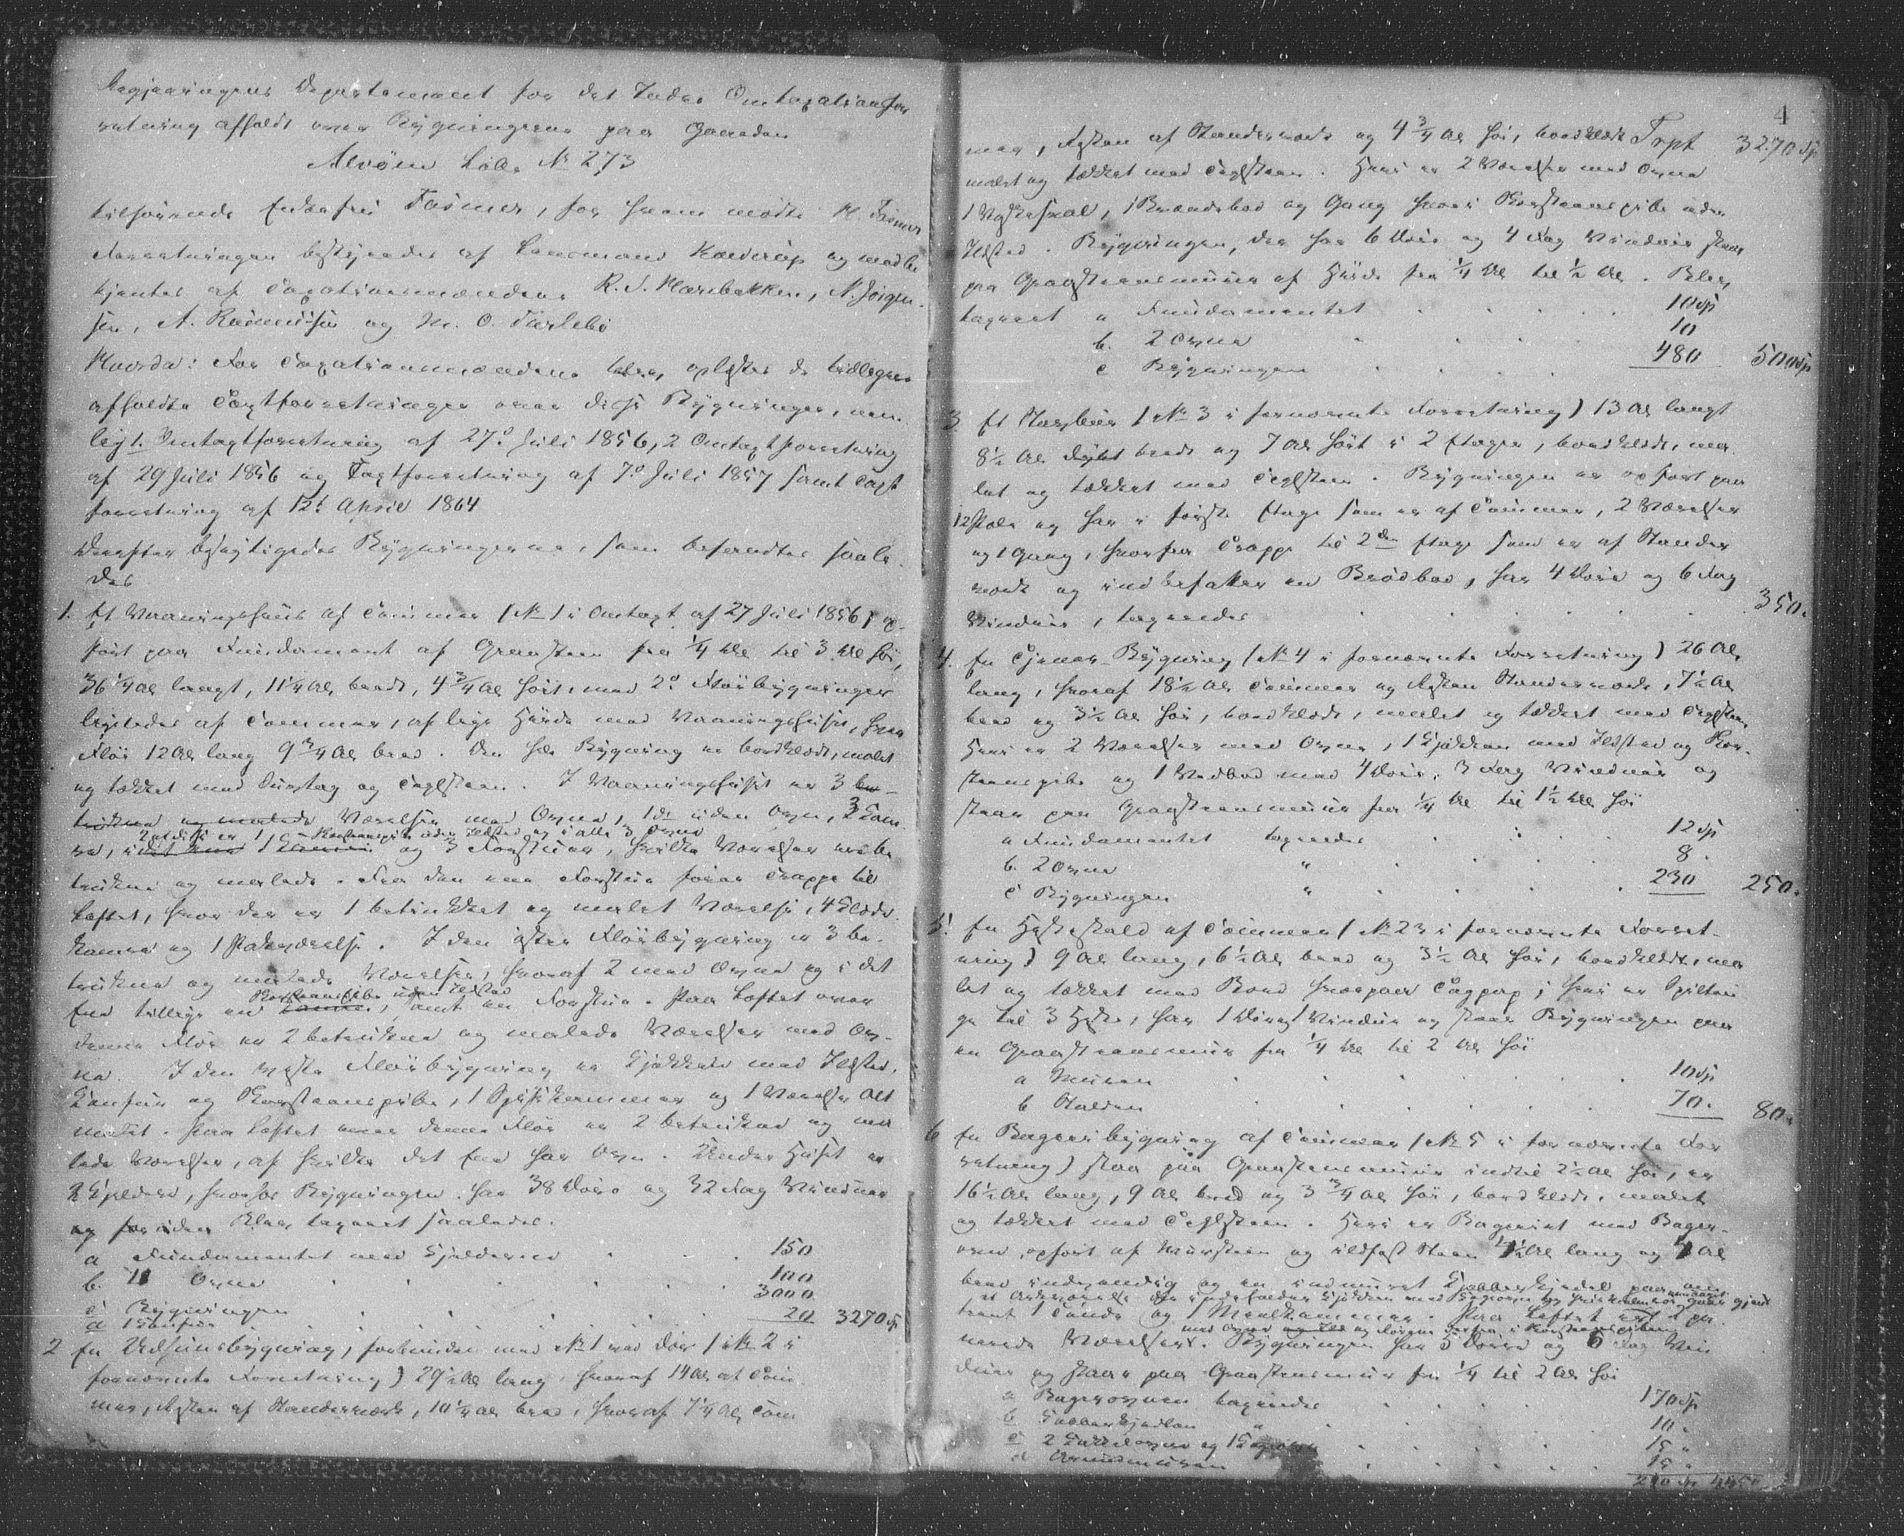 Regjeringens Departement for det Indre Omtaxationsfor
retning afholdt over Bygningerne paa Gaarden
Alvøen Løbe No 273
tilhørende Enkefru Fasmer, for hvem mødte H. Fasmer
Forretningen bestyredes af Lensmand Kaldrup og medbe
kjentes af Taxationsmændene R. J. Marebakken, N. Jørgen-
sen, A. Rasmussen og M. O. Tarlebø
Hvorda: For Taxationsmændene blev oplæst de tidligere
afholdte Taxtforretninger over disse Bygninger, nem
lig 1. Omtaxtforretning af 27de Juli 1856, 2 Omtaxtforretning
af 29 Juli 1856 og Taxtforretning af 7de Juli 1857 samt Taxt
forretning af 12te April 1864
Derefter besigtigedes Bygningerne, som befandtes saale-
des
1. Et Vaaningshuus af Tømmer (No 1 i Omtaxt af 27 Juli 1856) op-
ført paa Fundament af Graasteen fra 1/4 Al til 3 Al høi,
36 1/4 Al langt, 11 1/4 Al bredt, 4 3/4 Al høit, med 2de Fløibygninger
ligeledes af Tømmer, af lige Høide med Vaaningshuset, hver
Fløi 12 Al lang 9 3/4 Al bred. Den hele Bygning er bordklædt, malet
og tækket med Suustag og Teglsteen. I Vaaningshuset er 3 be-
trukne og malede Værelser med Ovne, 1 dt uden Ovn, 3 Kam
2 af disse er 1 Korsteenspibe uden Ildsted og i alle 3 Ovne
re, og 3 Forstuer, hvilke Værelser ere be
trukne og malede. Fra den ene Forstue fører Trappe til
Loftet, hvor der er 1 betrukket og malet Værelse, 4 Klæde-
kamre og 1 Pakværelse. I den østre Fløibygning er 3 be-
trukne og malede Værelser, hvoraf 2 med Ovne og i det
Korsteenspibe uden Ildsted
Ene tillige en samt en Forstue. Paa Loftet over
denne Fløi er 2 betrukne og malede Værelser med Ov-
ne. I den vestre Fløibygning er Kjøkken med Ildsted,
Komfur og Korsteenspibe, 1 Spisekammer og 1 Værelse Alt
malet. Paa Loftet over denne Fløi er 2 betrukne og ma
lede Værelser, af hvilke det Ene har Ovn. Under Huset er
2 Kjeldere, hvorhos Bygningen har 38 Døre og 32 Fag Vinduer
og foruden Blev taxeret saaledes.
a Fundamentet med Kjelderne . . . 150
b. 11 Ovne . . . 100
c Bygningen . . . 3000
d 1 Komfur . . . 20 3270 Sp
2 En Udhuusbygning, forbunden med No 1 ved Dør (No 2 i
fornævnte Forretning) 29 1/2 Al lang hvoraf 14 Al af Tøm
mer, Resten af Standerværk, 10 1/4 Al bred, hvoraf 7 1/4 Al Tøm
4
mer, Resten af Standerværk og 4 3/4 Al høi, bordklædt Trpt 3270 Sp
malet og tækket med Teglsteen. Heri er 2 Værelser med Ovne
1 Vaskeskaal, 1 Brændebod og Gang hvori Korsteenspibe uden
Ildsted. Bygningen, der har 6 Døre og 4 Fag Vinduer staar
paa Graasteensmuur af Høide fra 1/4 Al til 1/2 Al. Blev
taxeret a Fundamentet . . . 10 Sp
b. 2 Ovne . . . 10
c Bygningen . . . 480 500 Sp
3 Et Stabbuur (No 3 i fornævnte Forretning) 13 Al langt
8 1/2 Al bredt og 7 Al høit i 2 Etager, bordklædt, ma
let og tækket med Teglsteen. Bygningen er opført paa
12 Pæle og har i første Etage som er af Tømmer, 2 Værelser
og 1 Gang, hvorfra Trappe til 2den Etage som er af Stander
værk og indbefatter en Brødbod, har 4 Døre og 6 Fag
Vinduer, taxeredes . . . 350.
4. En Tjener-Bygning (No 4 i fornævnte Forretning) 26 Al
lang, hvoraf 18 1/2 Al Tømmer og Resten Standerværk, 7 1/2 Al
bred og 3 1/2 Al høi, bordklædt, malet og tækket med Teglsteen.
Heri er 2 Værelser med Ovne, 1 Kjøkken med Ildsted og Kor-
steenspibe og 1 Vedbod med 4 Døre, 3 Fag Vinduer og
staar paa Graasteensmuur fra 1/4 Al til 1 1/2 Al høi
a Fundamentet taxeredes . . . 12 Sp
b. 2 Ovne " . . . 8.
c Bygningen " . . . 230 250.
5. En Hestestald af Tømmer (No 23 i fornævnte Forret-
ning) 9 Al lang, 6 1/2 Al bred og 3 1/2 Al høi, bordklædt, ma
let og tækket med Bord hvorpaa Tagpap; heri er Spiltou
ge til 3 Heste, har 1 Dør, 1 Vindue og staar Bygningen paa
en Graasteensmuur fra 1/4 Al til 2 Al høi
a Muren . . . 10 Sp
b Stalden . . . 70. 80.
6 En Bageribygning af Tømmer (No 5 i fornævnte For
retning) staar paa Graasteensmuur indtil 2 1/2 Al høi, er
16 1/2 Al lang, 9 Al bred og 3 3/4 Al høi, bordklædt, malet
og tækket med Teglsteen. Heri er Bageriet med Bager-
ovn, opført af Muursteen og ildfast Steen 4 1/2 Al lang og 4 Al
bred indvendig og en indmuret Kobberkjedel paa om
trent 1 Tønde og 1 Meelkammer. Paa Loftet er 1 pa
nerede Værelser. Bygningen har 5 Døre og 6 Fag Vin
duer og staar paa Graasteensmuur fra 1/4 til 2 Al høi
a Bagerovnen taxeredes . . . 170 Sp
b Kobberkjedlen " . . . 10.
c 2 Kakkelovne og 1 . . . 15 "
d Grundmuren . . . 15 "
210 Sp 4450